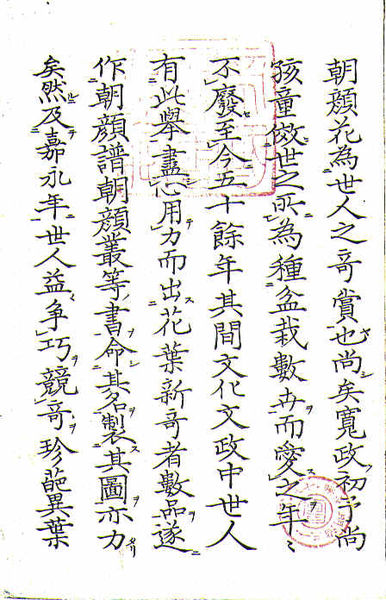 朝顔花為世人之奇賞也尚矣寛政初予尚
孩童倣世之所為種盆栽數卉而愛之年〻
不廢至今五十餘年其間文化文政中世人
有此擧盡心用力而出花葉新奇者數品遂
作朝顔譜朝顔叢等書命其名製其圖亦力
矣然及嘉永年世人益争巧競奇珍葩異葉